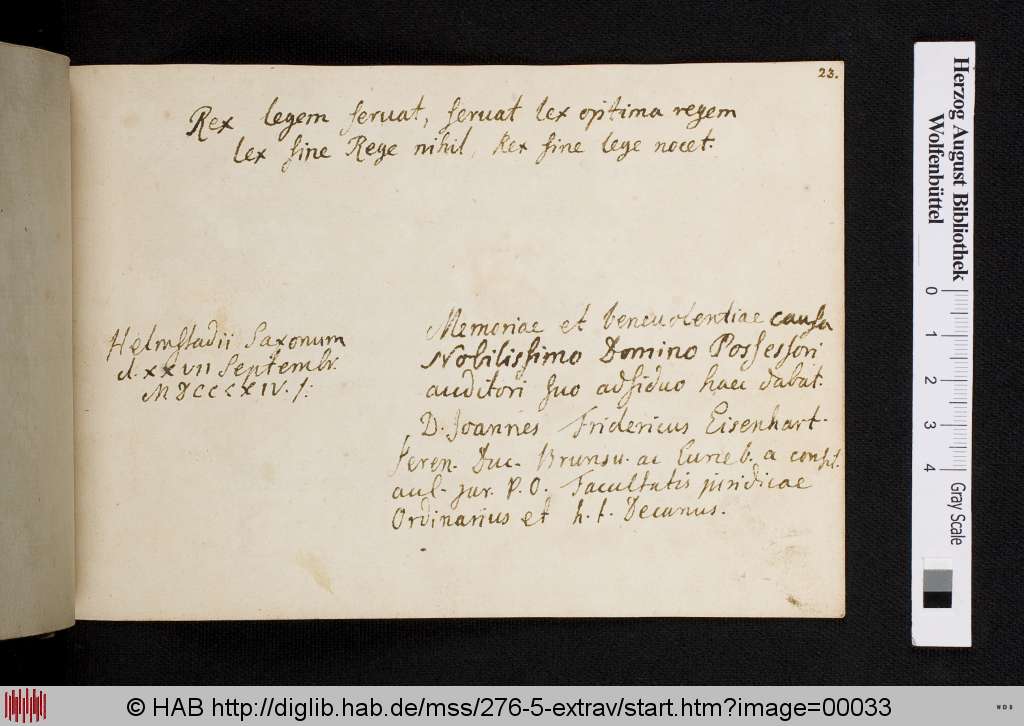 23.
Rex legem servat, servat lex optima regem
lex sine Rege nihil, Rex sine lege nocet.
Helmstadii Saxonum
d. XXVII Septembr.
Memoriae et benevolentiae causa
Nobilissimo Domino Possessori
auditori suo adsiduo haec dabat.
D. Joannes Fridericus Eisenhart.
seren. Duc. Brunsu. ac Luneb. a consil.
aul. jur. P. O. Facultatis juridicae
Ordinarius et h. t. Decanus.
Herzog August Bibliothek
Wolfenbüttel
0
1
2
3
4
Gray Scale
© HAB http://diglib.hab.de/mss/276-5-extrav/start.htm?image=00033